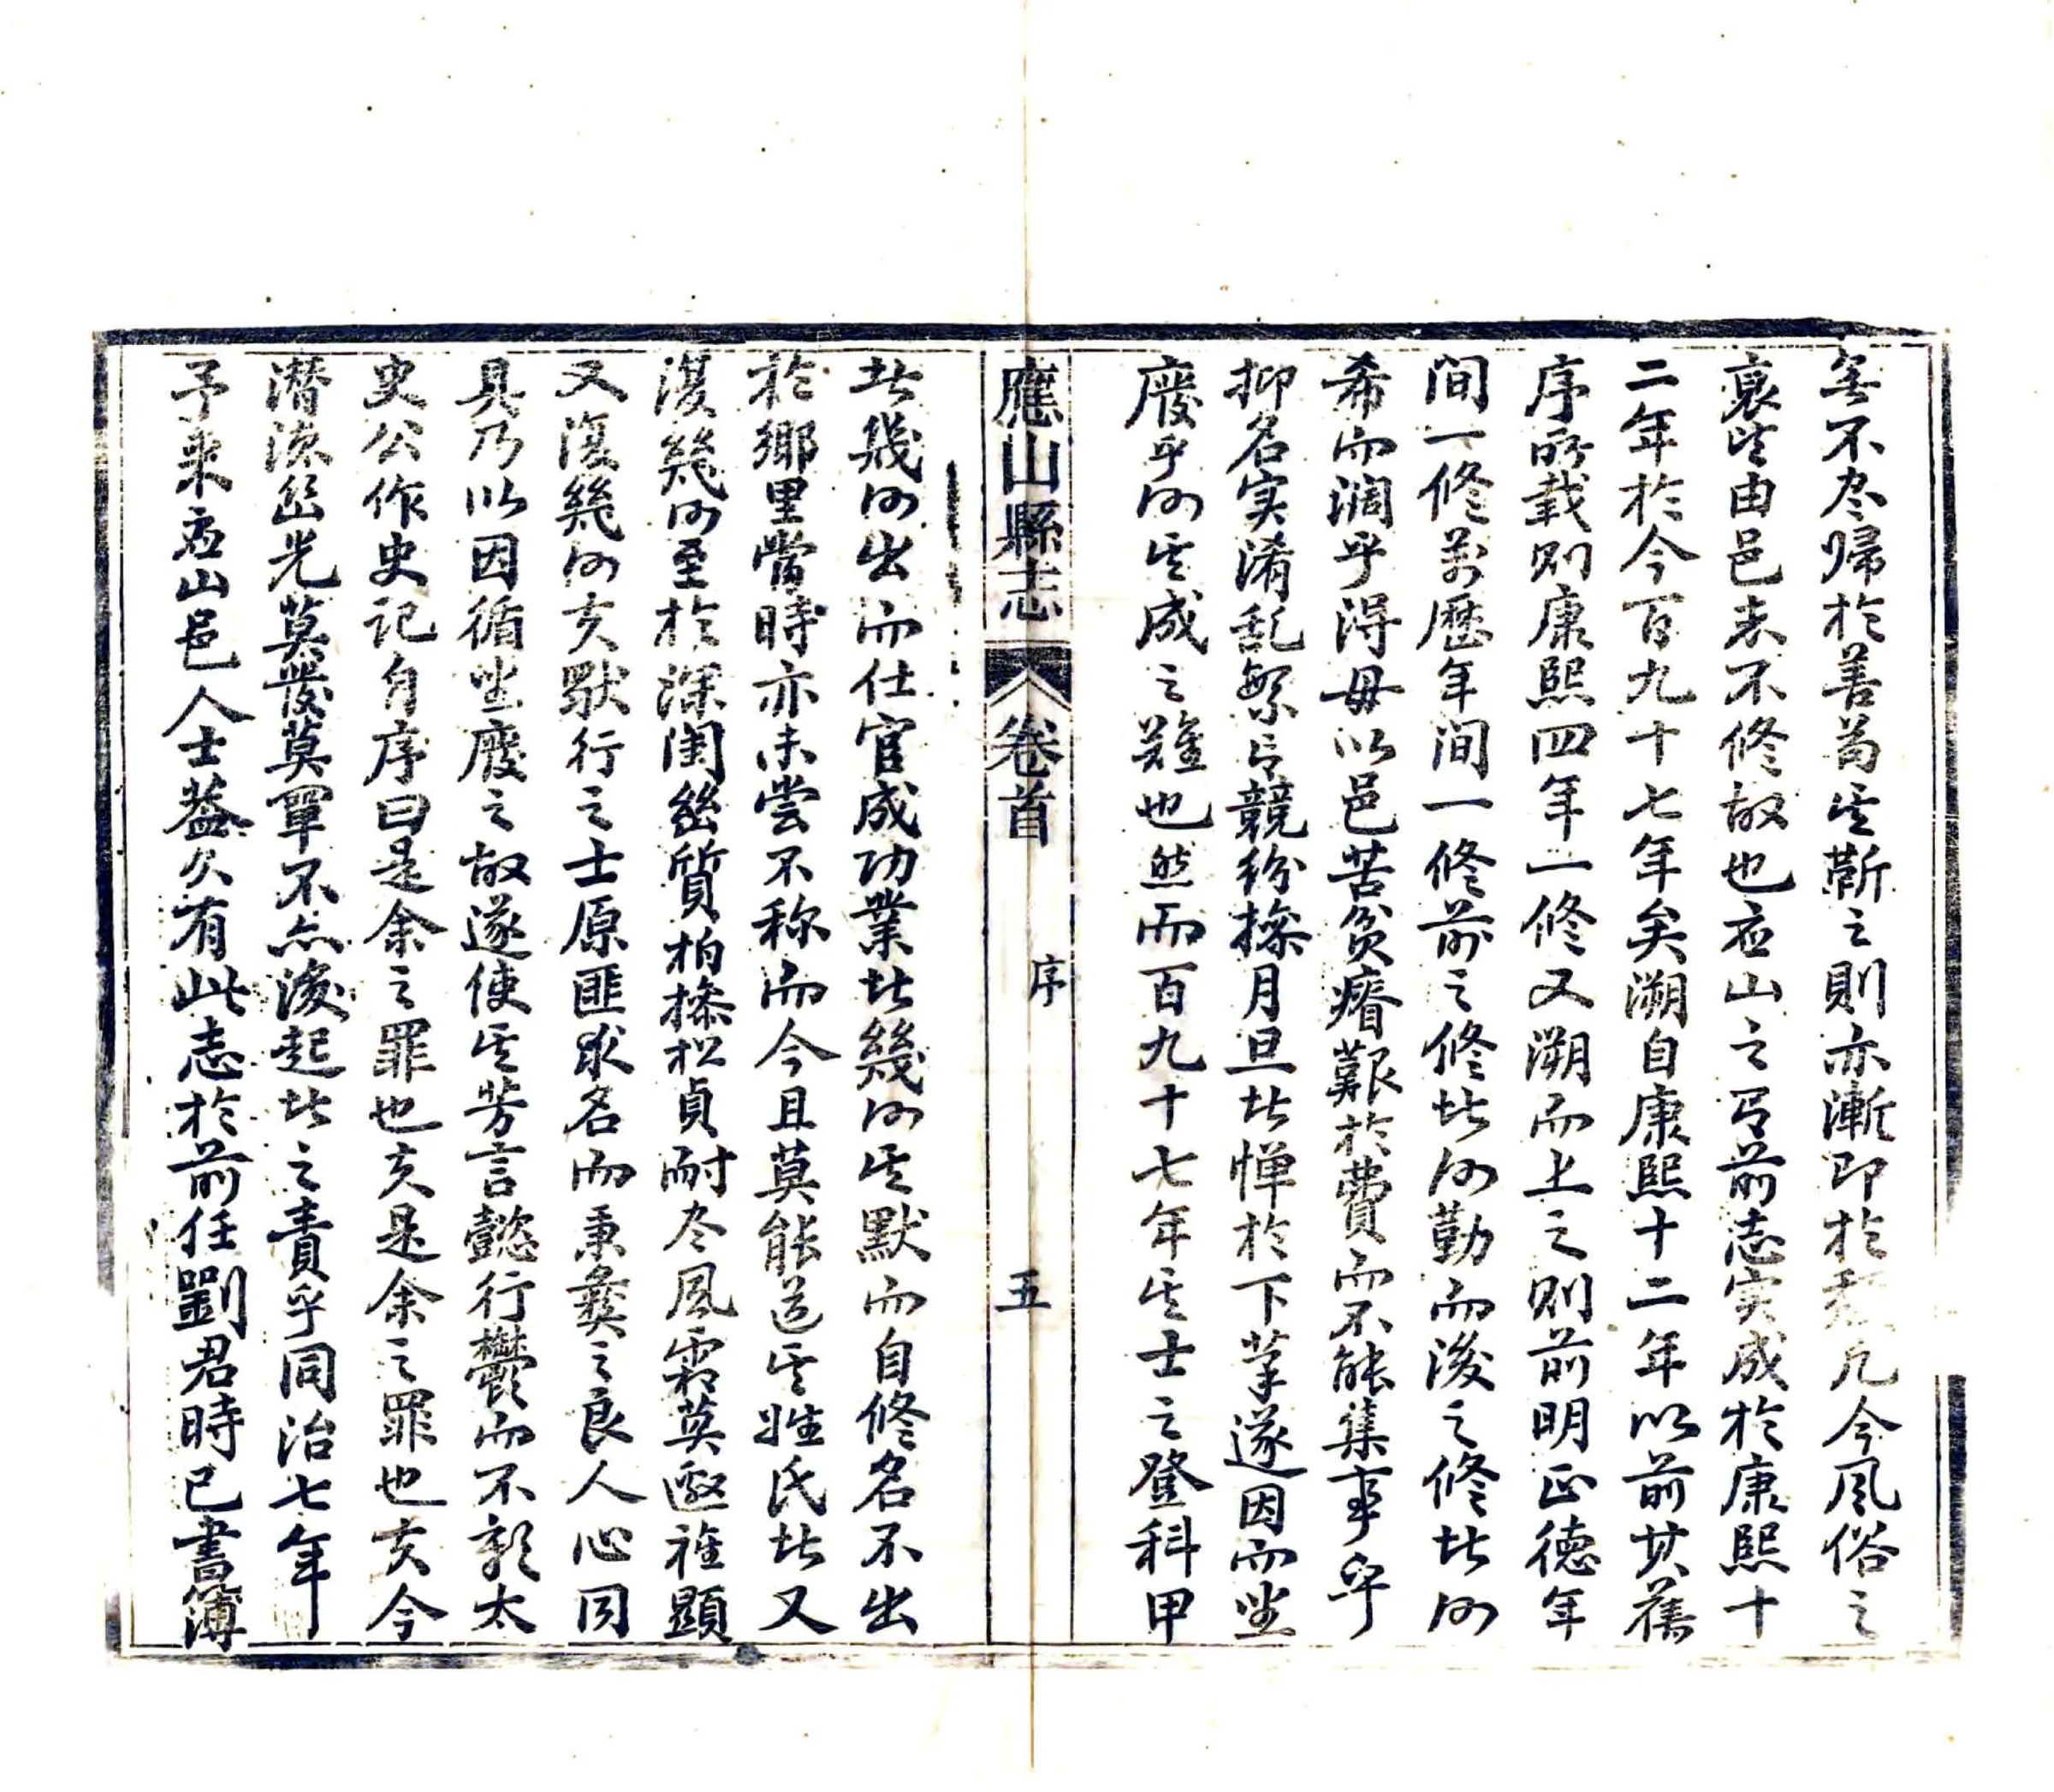 無不尽歸於善苟其靳之則亦漸即於 凡今風俗之
衰皆由邑志不修故也应山之有前志实成於康熙十
二年於今百九十七年矣溯自康熙十二年以前共舊
序所載則康熙四年一修又溯而上之則前明正德年
间一修萬歷年间一修前之修者何勤而後之修者何
希而濶乎得毋以邑苦贫瘠艱於費而不能集事乎
抑名实淆乱众口競紛操月旦者惮於下筆遂因而坐
廢乎何其成之難也然而百九十七年其士之登科甲
應山縣志 卷首 序 五
者幾何出而仕宦成功業者幾何其默而自修名不出
於鄉里當時亦未嘗不称而今且莫能道其姓氏者又
復幾何至於深闺幽質柏操松貞耐尽風霜莫邀旌顯
又復幾何夫獸行之士原匪求名而秉彝之良人心同
具乃以因循坐廢之故遂使其芳言懿行鬱而不彰太
史公作史记自序曰是余之罪也夫是余之罪也夫今
潛德幽光莫發莫闡不亦後起者之責乎同治七年
予来应山邑人士葢久有此志於前任劉君時已書簿